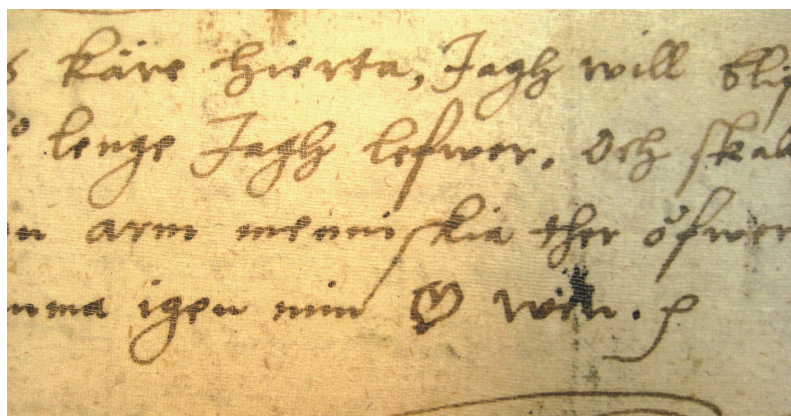 käre hierta, Jagh will bli
lenge Jagh lefwer. Och skal
arm menniskia ther öfwer
igen min ♡ wen.